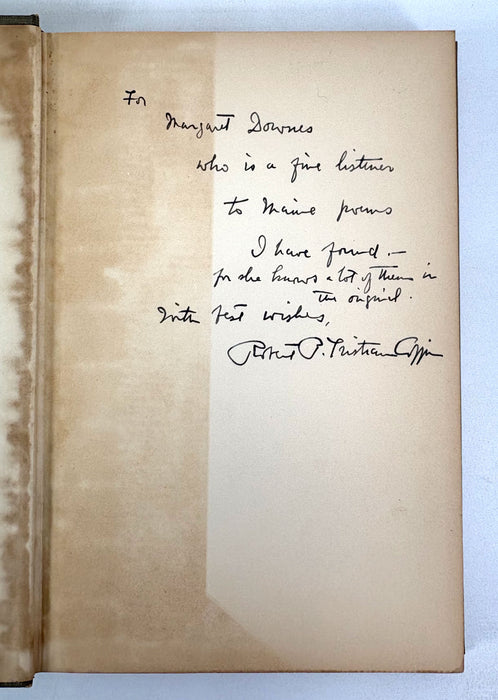 For
Margaret Downes
who is a fine listener
to Maine poems
I have found —
for she knows a lot of them in
the original.
With best wishes,
Robert P. Tristram Coffin